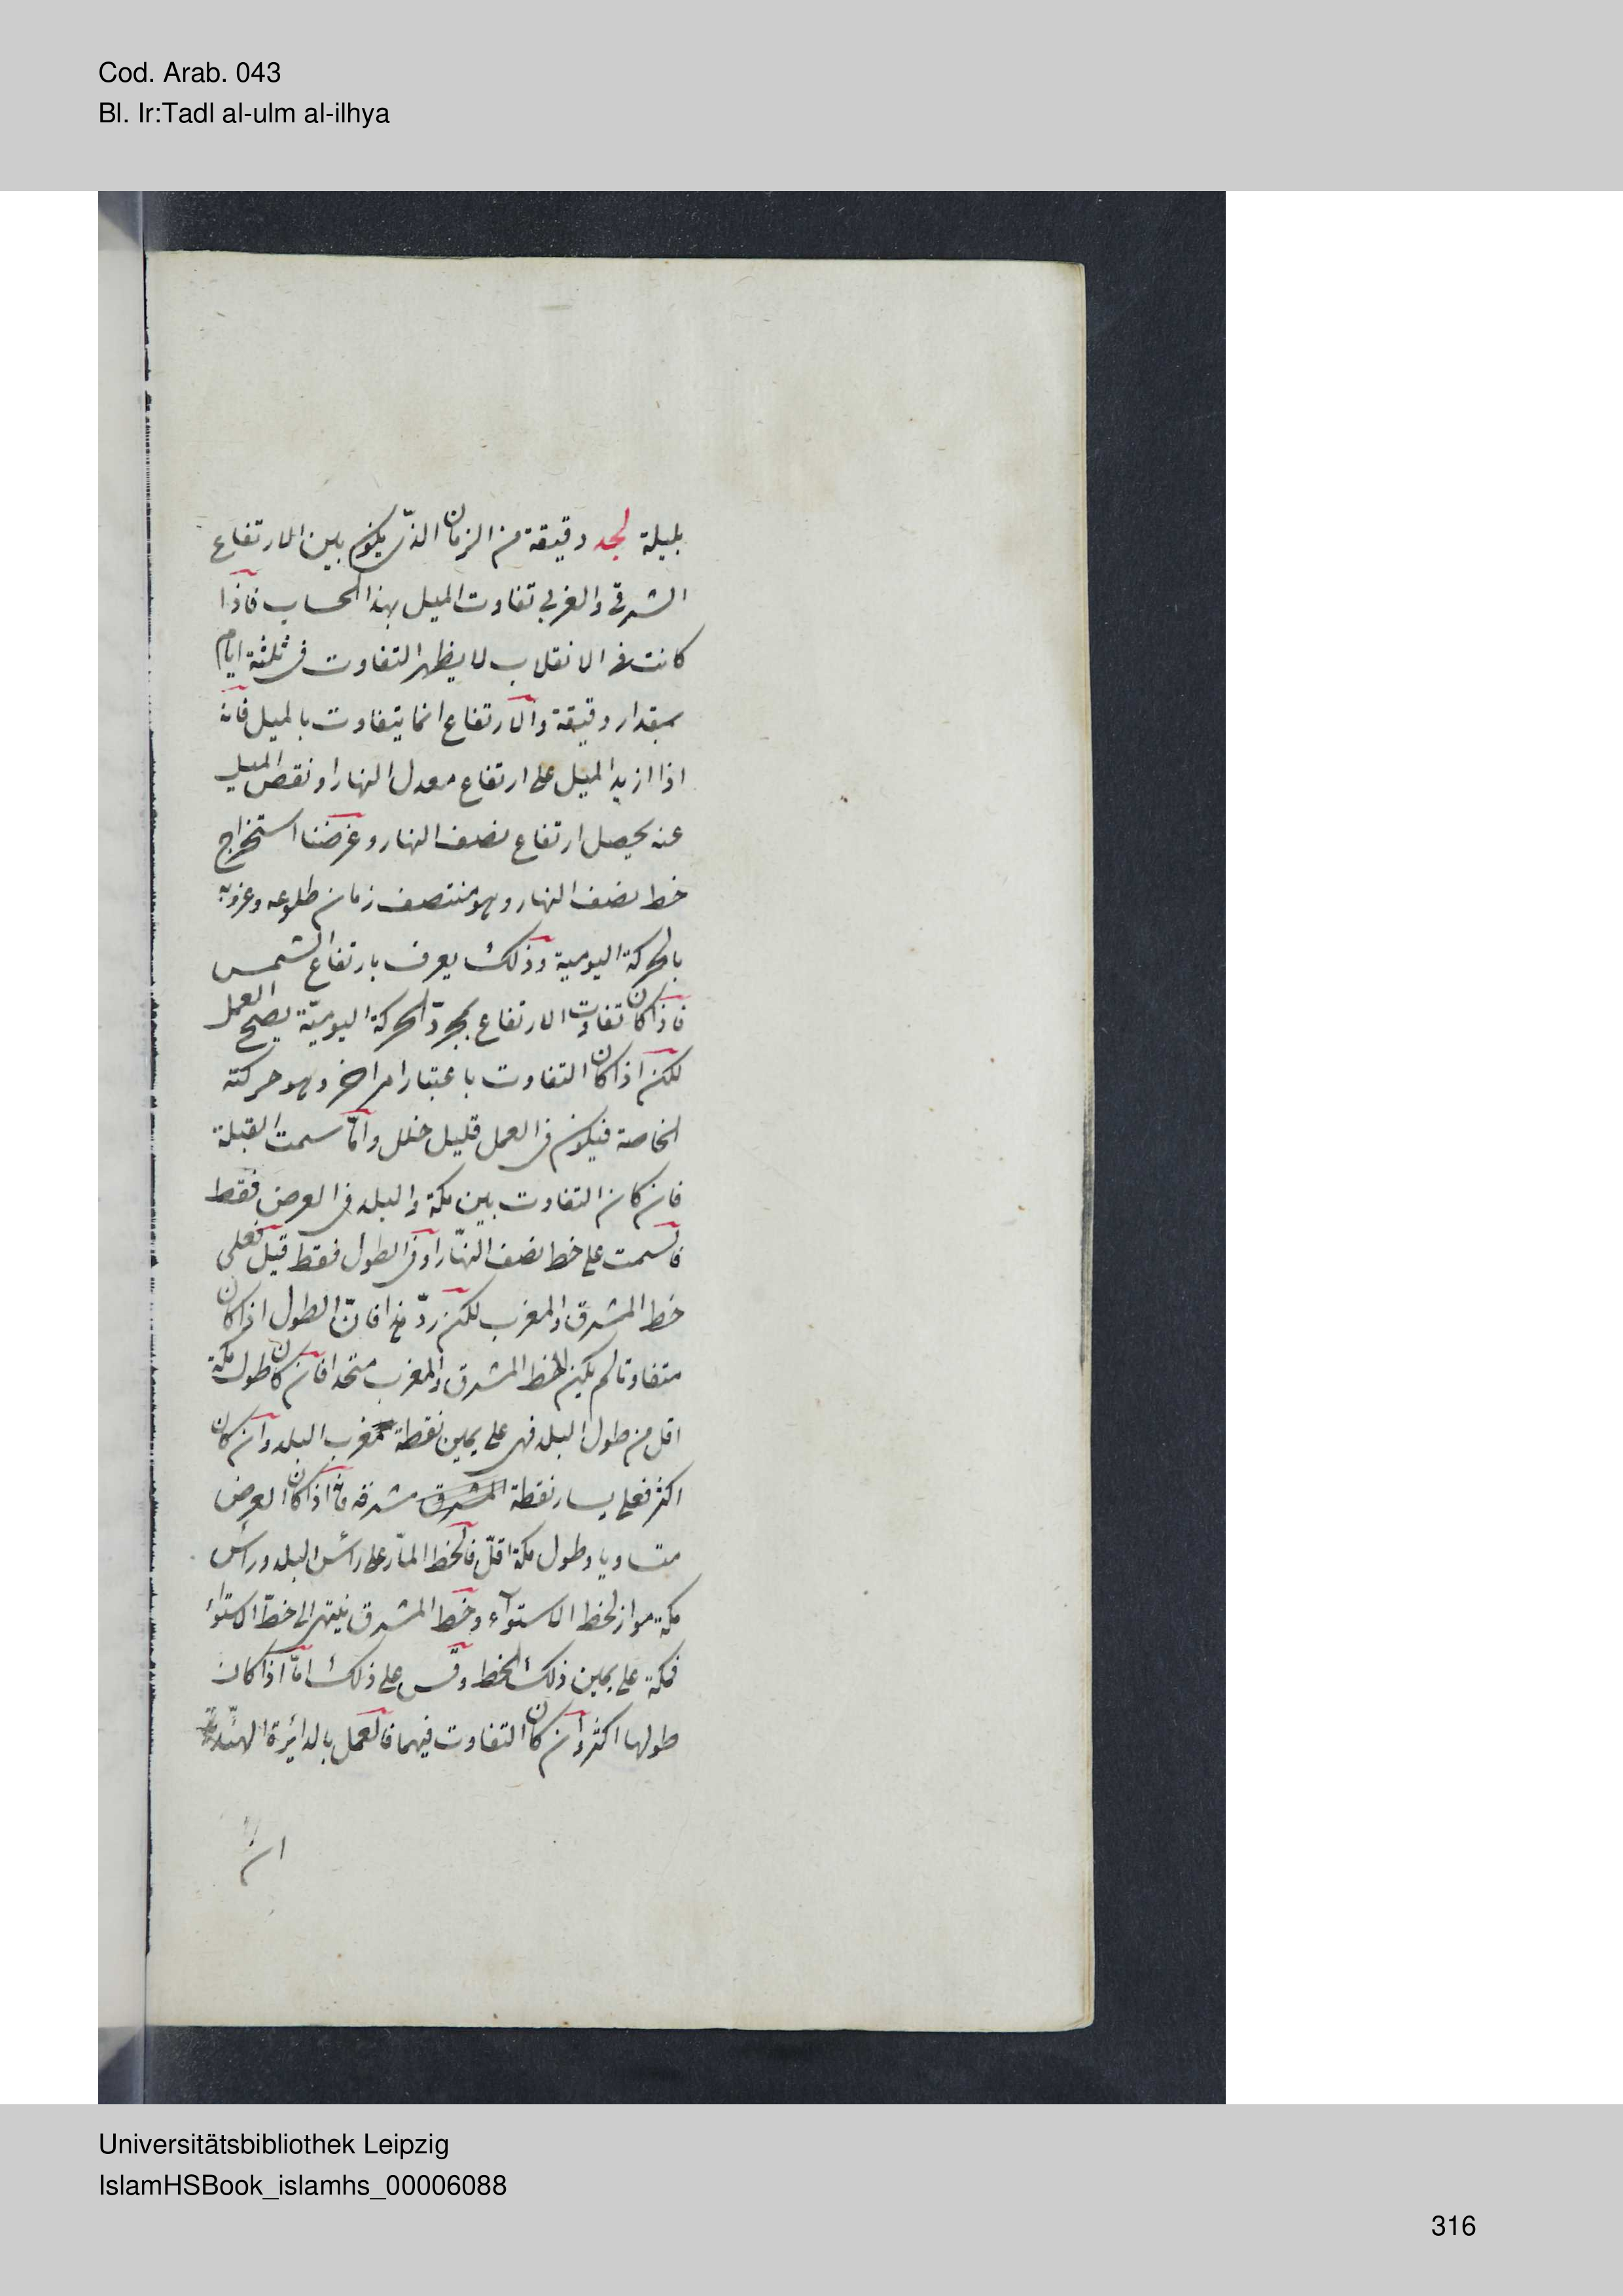 Cod. Arab. 043
Bl. Ir:Tadl al-ulm al-ilhya
بليلة لجد دقيقة من الزمان الذى يكون بين الارتفاع
الشرقى والغربى تفاوت الميل بهذا الحساب فاذا
كانت فى الانقلاب لا يظهر التفاوت فى ثلثة ايام
بمقدار دقيقة والارتفاع انما يتفاوت بالميل فانه
اذا ازيد الميل على ارتفاع معدل النهار او نقص الميل
عنه يحصل ارتفاع نصف النهار وغرضنا استخراج
خط نصف النهار وهو منتصف زمان طلوعه وغروبه
بالحركة اليومية وذلك يعرف بارتفاع الشمس
فاذا كان تفاوت الارتفاع بمجرد الحركة اليومية يصح العمل
لكن اذا كان التفاوت باعتبار امر اخر وهو حركته
الخاصة فيكون فى العمل قليل خلل واما سمت القبلة
فان كان التفاوت بين مكة والبلد فى العرض فقط
فالسمت على خط نصف النهار او فى الطول فقط قيل فعلى
خط المشرق والمغرب لكن رد هذا فان الطول اذا كان
متفاوتا لم يكن خط المشرق والمغرب متحدا فان كان طول مكة
اقل من طول البلد فهى على يمين نقطة مغرب البلد وان كان
اكثر فعلى يسار نقطة المشرق مشرقه فاذا كان العرض
متساويا وطول مكة اقل فالخط المار على راس البلد وراس
مكة مواز لخط الاستواء وخط المشرق ينتهى الى خط الاستواء
فمكة على يمين ذلك الخط وقس على ذلك اما اذا كان
طولها اكثر وان كان التفاوت فيهما فالعمل بالدائرة الهندية
ان
Universitätsbibliothek Leipzig
IslamHSBook_islamhs_00006088
316